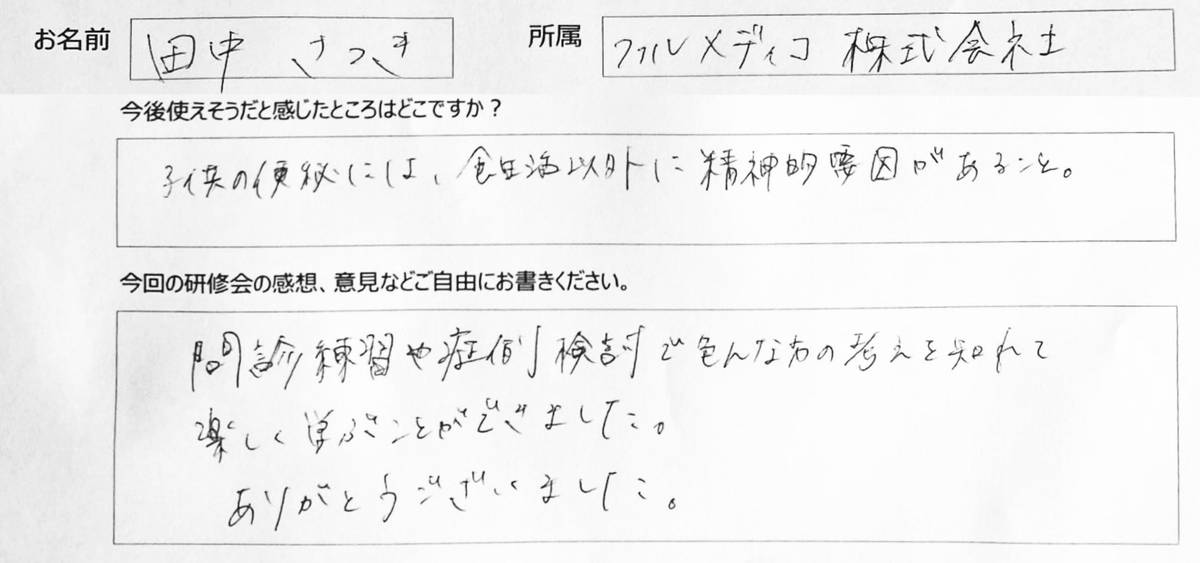 お名前 田中 さつき 所属 ファルメディコ 株式会社
今後使えそうだと感じたところはどこですか？
子供の便秘には、食生活以外に精神的要因があること。
今回の研修会の感想、意見などご自由にお書きください。
問診練習や症例検討で色んな方の考えを知れて
楽しく学ぶことができました。
ありがとうございました。